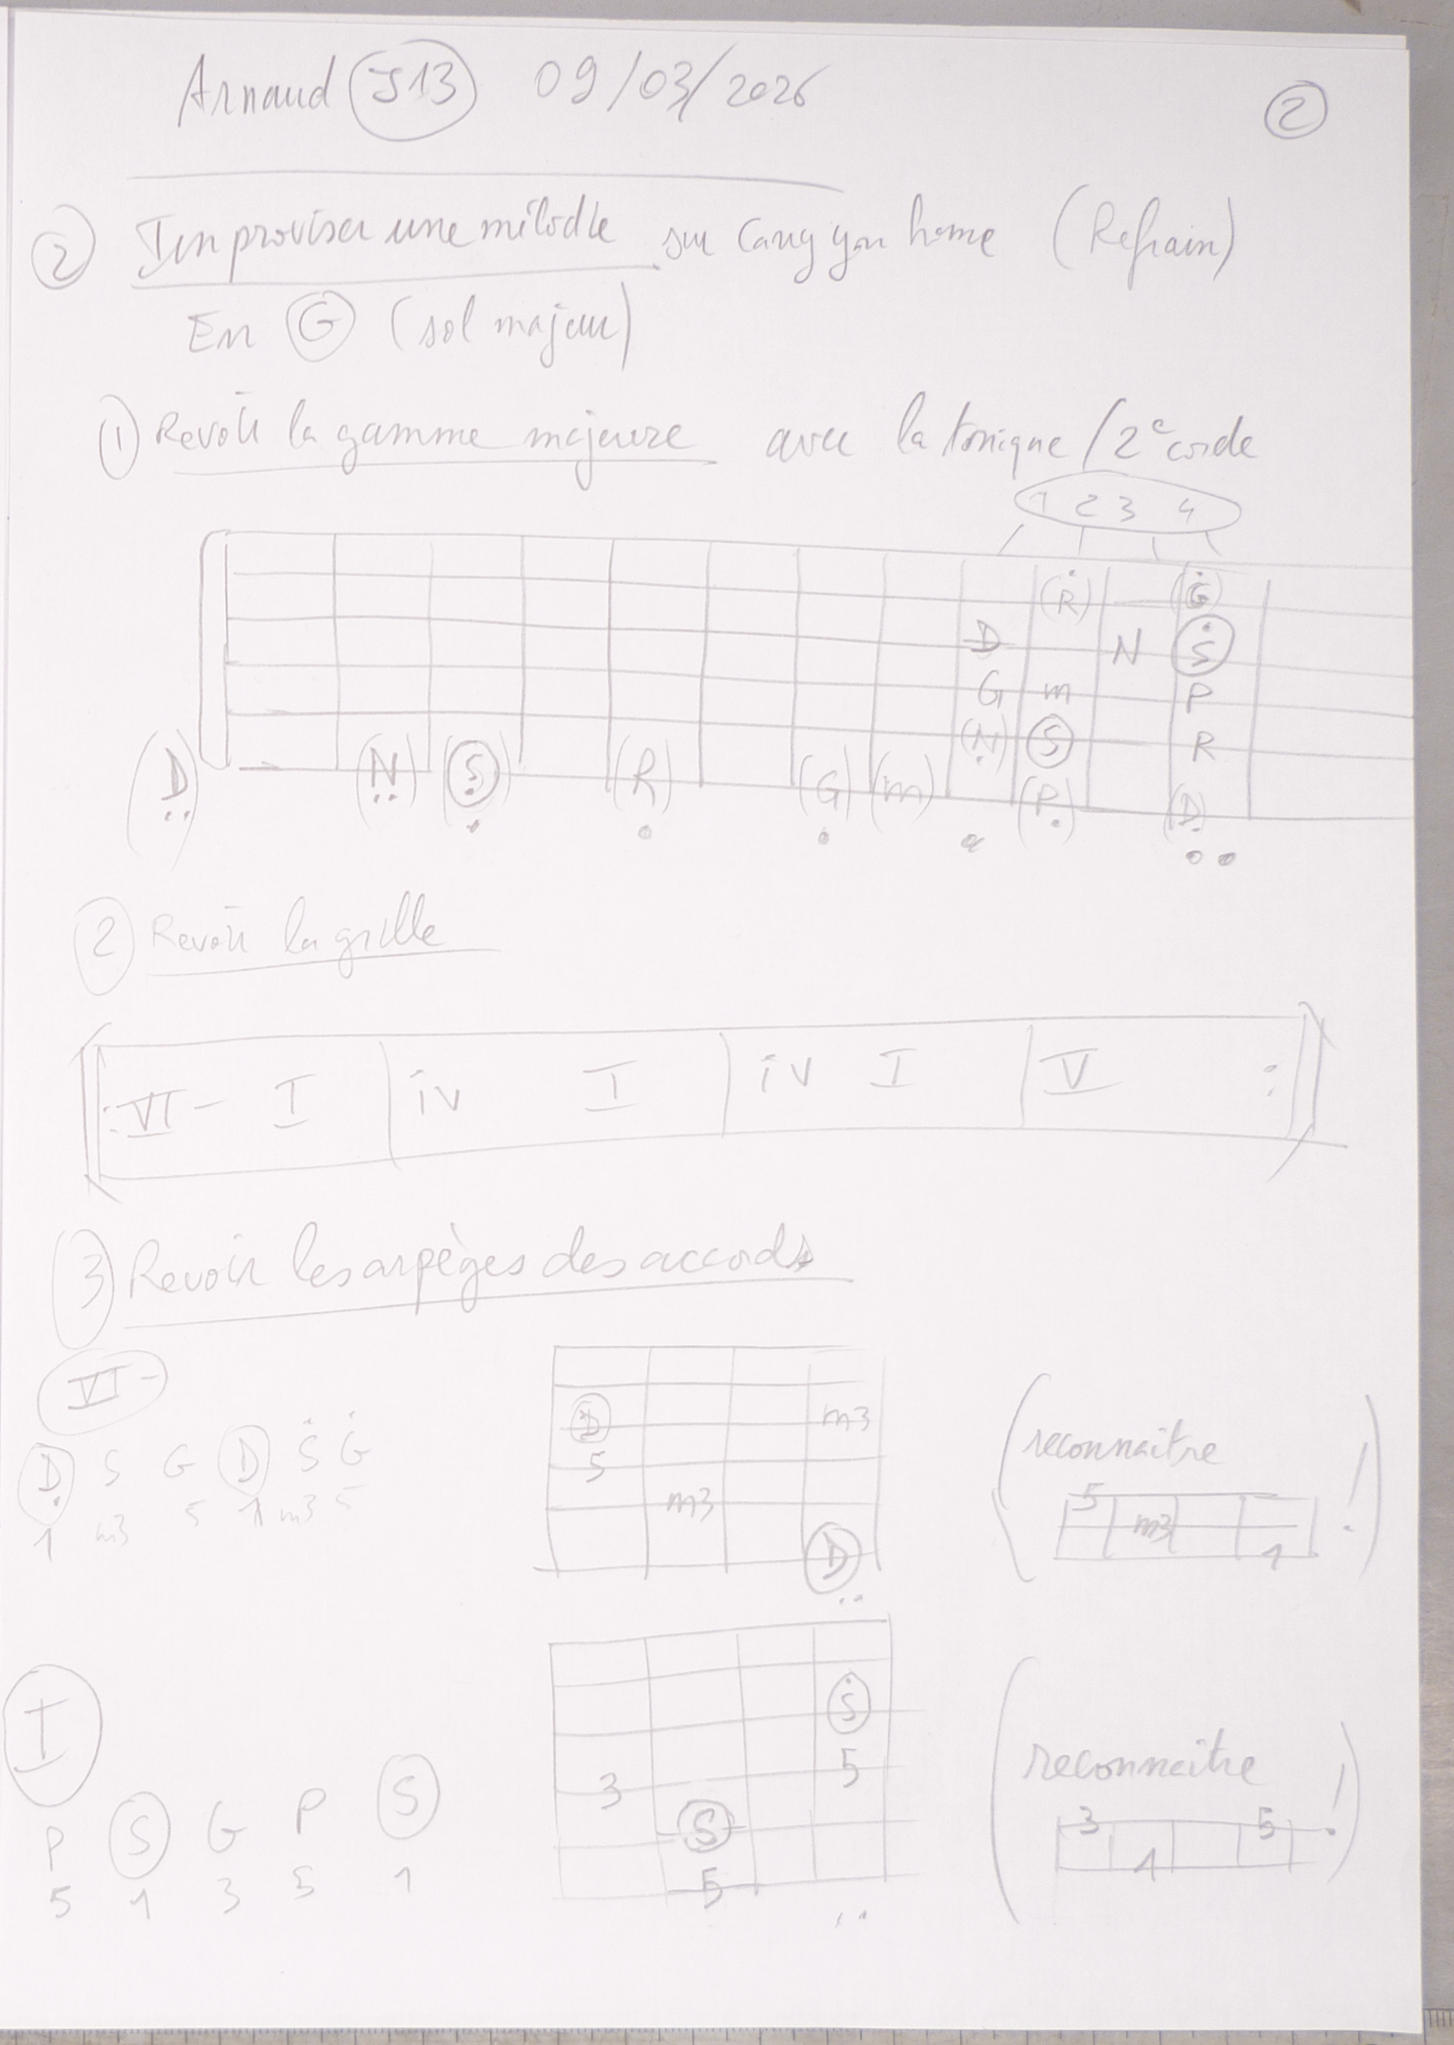 Arnaud J13 09/03/2026
2
2 Improviser une mélodie sur Carry you home (Refrain)
En G (sol majeur)
1 Revoir la gamme majeure avec la tonique / 2e corde
1 2 3 4
(R) (G)
D N S
G m P
(N) S R
(D) (N) (S) (R) (G) (m) (P) (D)
2 Revoir la grille
VI- I | iv I | iv I | V :
3 Revoir les arpèges des accords
VI-
D S G D S G
1 m3 5 1 m3 5
D m3
5
m3
D
(reconnaître !)
5 m3 1
I
P S G P S
5 1 3 5 1
S
5
3
S
5
(reconnaître !)
3 1 5